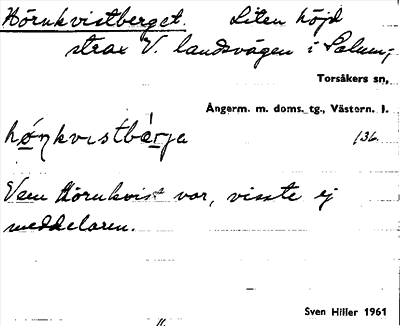 Hörnkvistberget. Liten höjd
strax V. landsvägen i Salum,
Torsåkers sn,
Ångerm. m. doms. tg., Västern. l.
hǿɳkvɩstbærja 136.
Vem Hörnkvist var, visste ej
meddelaren.
Sven Hiller 1961